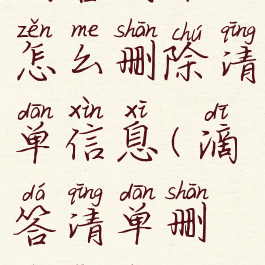 zěn me shān chú qīng
怎么删除清
dān xìn xī dī
单信息(滴
dá qīng dān shān
答清单删